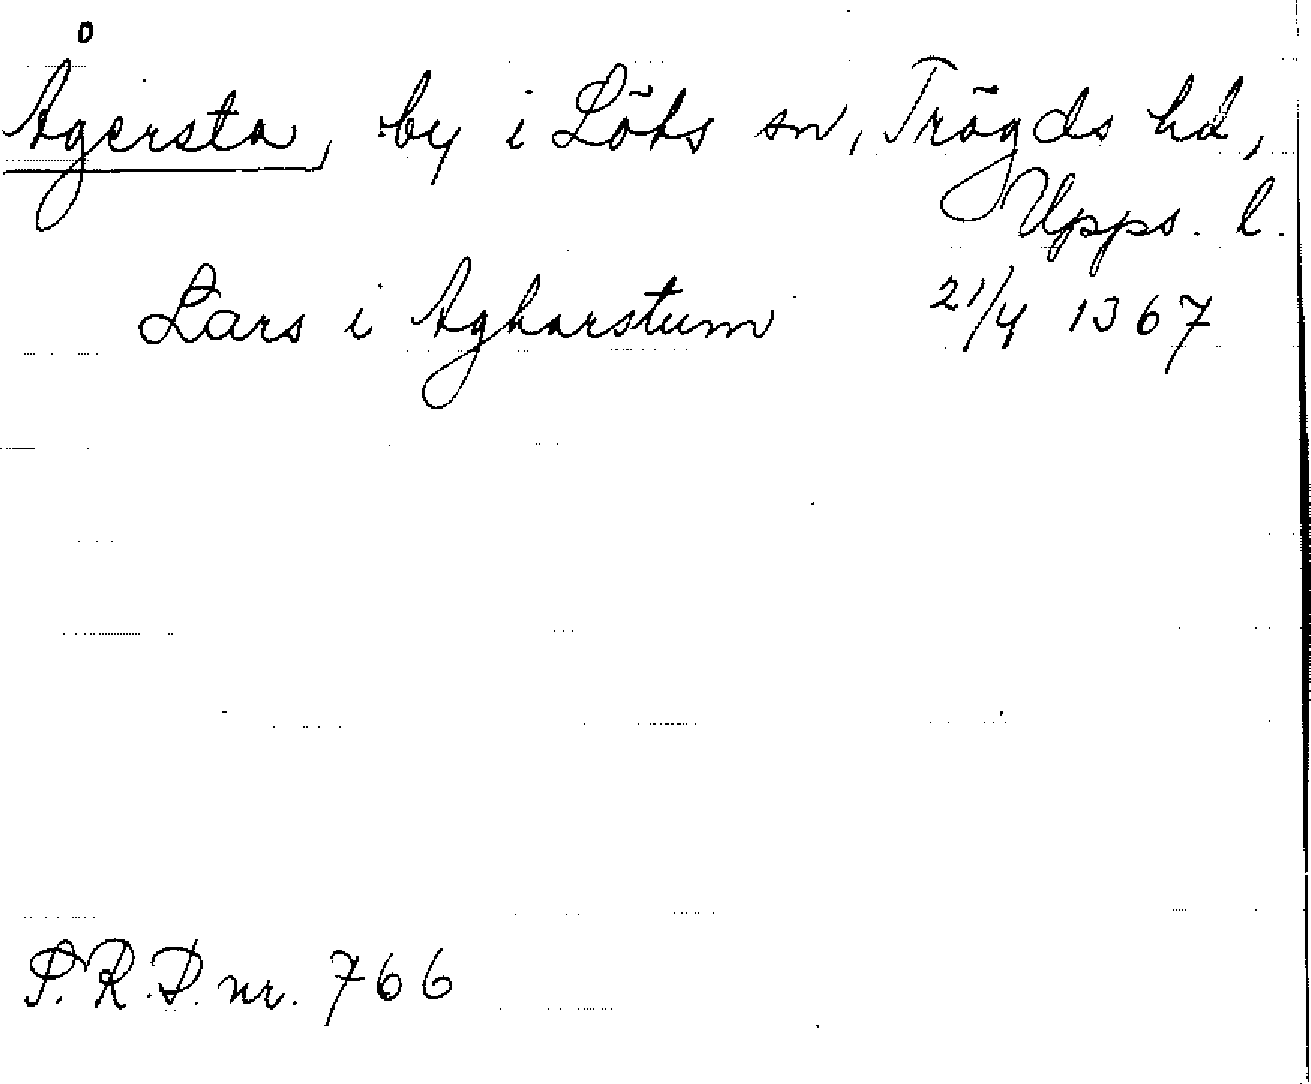 Ågersta, by i Löts sn, Trögds hd,
Upps. l.
Lars i Agharstum 21/4 1367
S.R.P. nr. 766